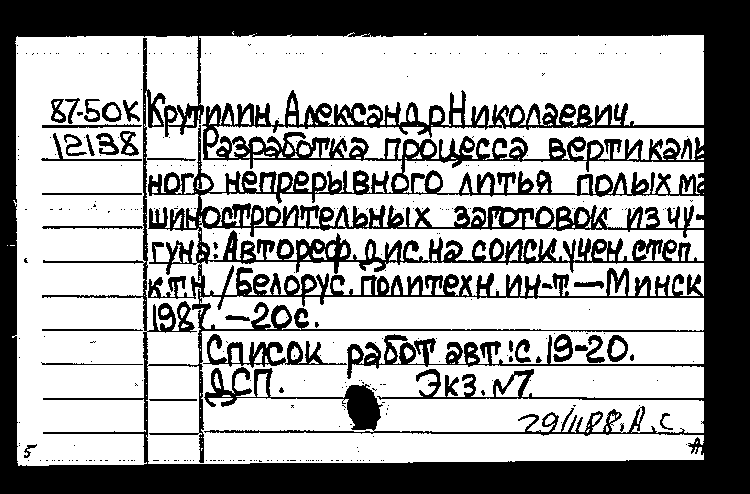 87-50К Крутилин, Александр Николаевич.
12138 Разработка процесса вертикаль
ного непрерывного литья полых ма
шиностроительных заготовок из чу-
гуна: Автореф. дис. на соиск. учен. степ.
к.т.н. / Белорус. политехн. ин-т. — Минск
1987. — 20с.
Список работ авт.: с. 19-20.
ДСП. Экз. №7.
29/II88. А.С.
5